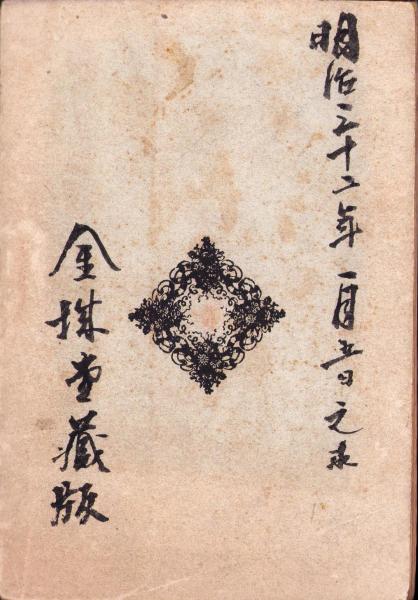 明治三十二年一月五日之求
金珠堂藏版